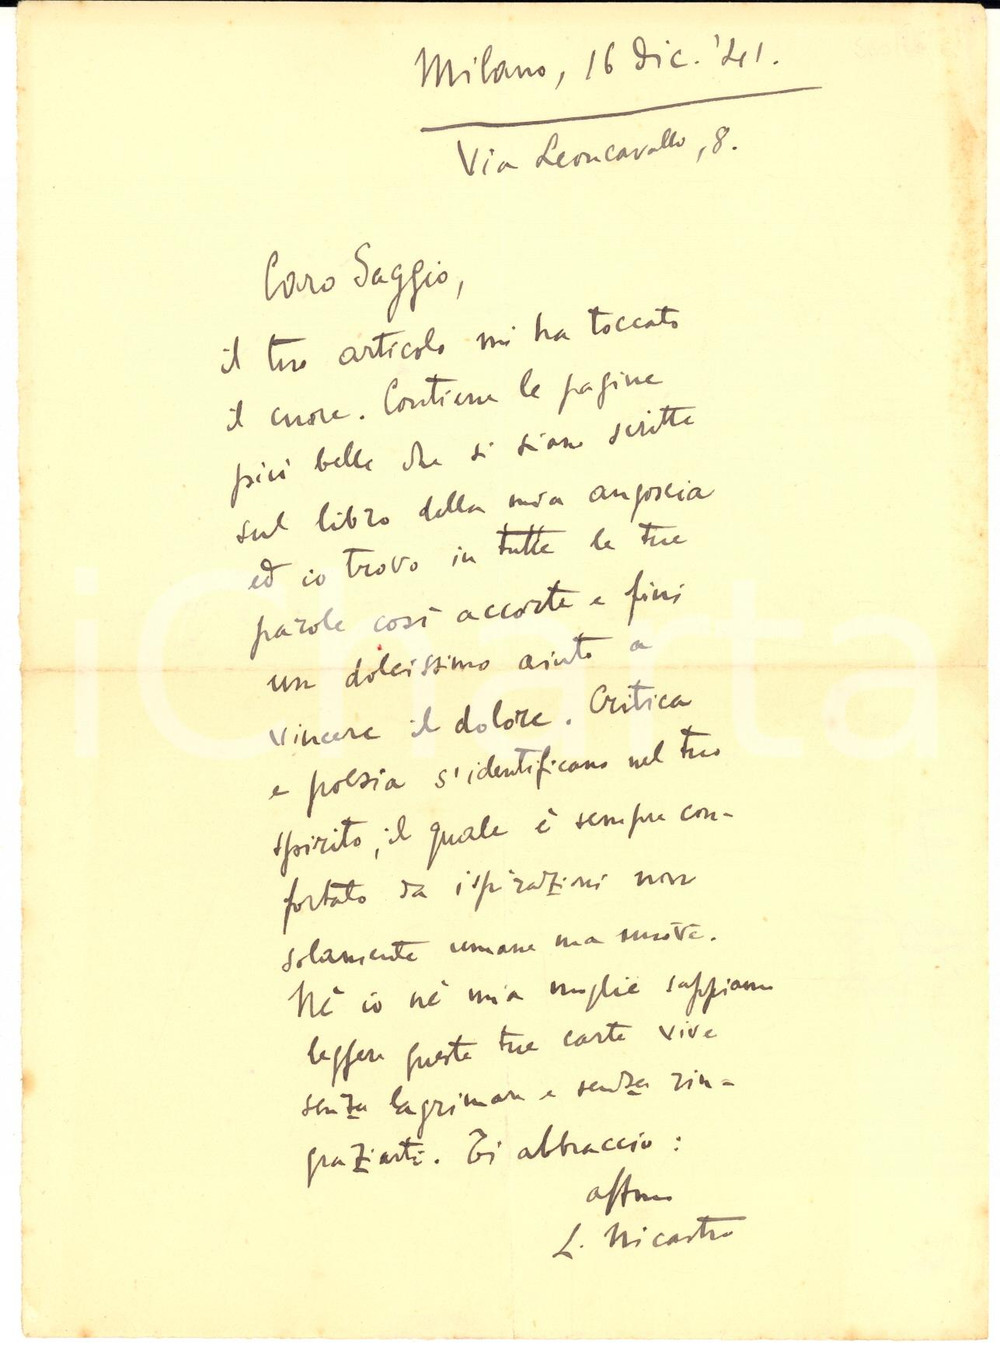 Milano, 16 dic. '41.
Via Leoncavallo, 8.
Caro Saggio,
il tuo articolo mi ha toccato
il cuore. Contiene le pagine
più belle che si siano scritte
sul libro della mia angoscia
ed io trovo in tutte le tue
parole così accorte e fini
un dolcissimo aiuto a
vincere il dolore. Critica
e poesia s'identificano nel tuo
spirito, il quale è sempre con-
fortato da ispirazioni non
solamente umane ma nuove.
Nè io nè mia moglie sappiamo
leggere queste tue carte vive
senza lagrimare e senza rin-
graziarti. Ti abbraccio:
aff.mo
L. Nicastro
iCharta